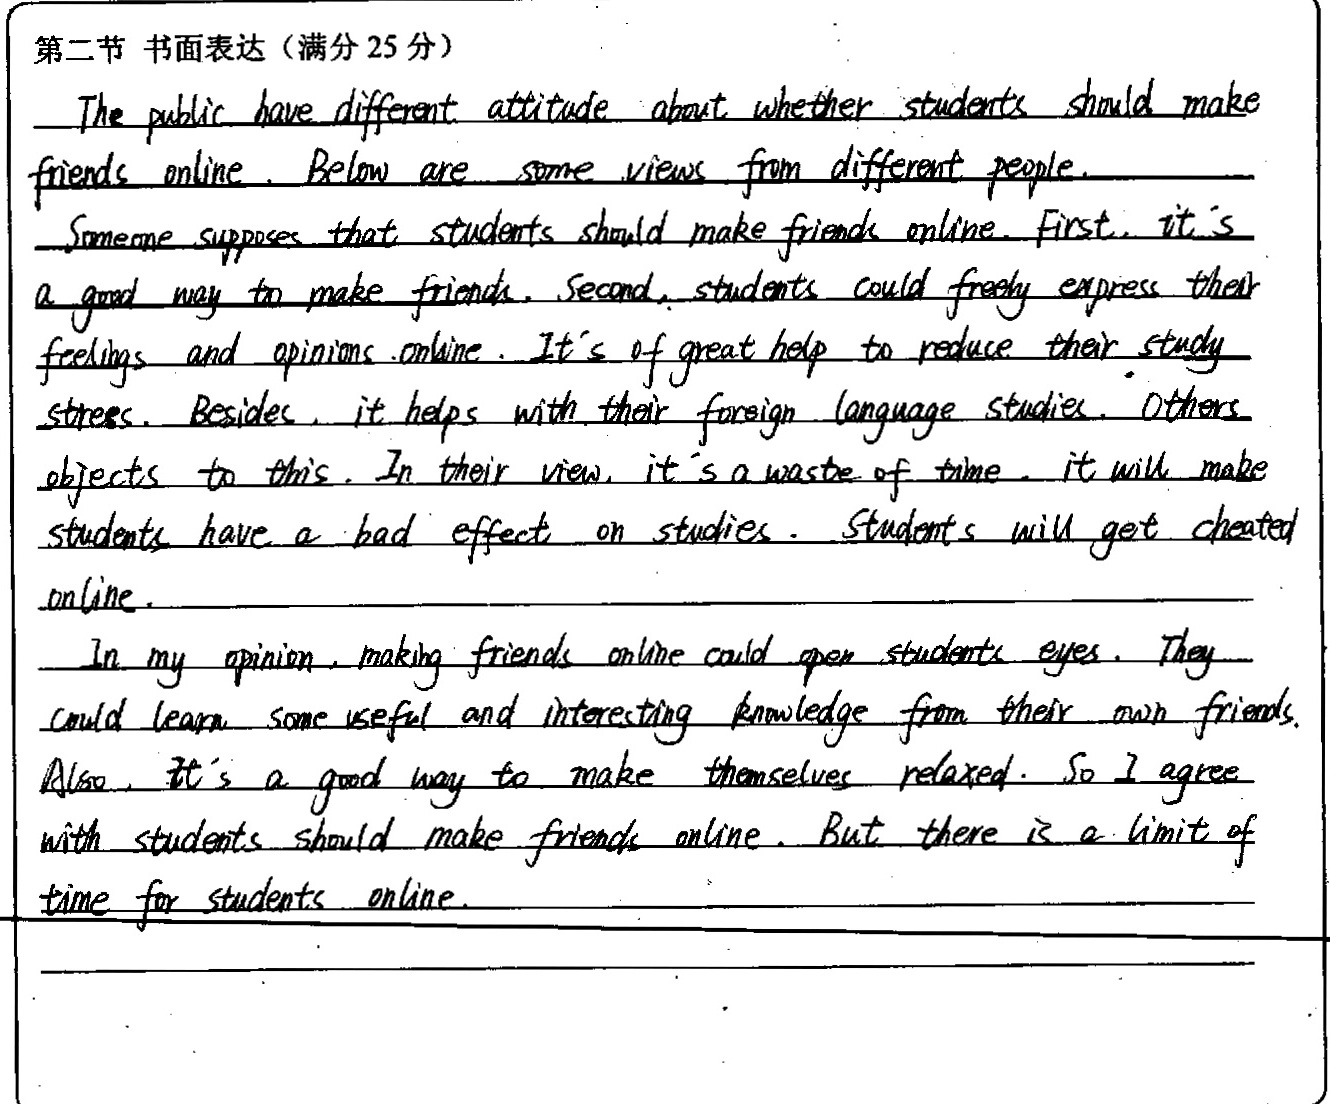 第二节 书面表达（满分 25 分）
The public have different attitude about whether students should make
friends online. Below are some views from different people.
Someone supposes that students should make friends online. First, it's
a good way to make friends. Second, students could freely express their
feelings and opinions online. It's of great help to reduce their study
stress. Besides, it helps with their foreign language studies. Others
objects to this. In their view, it's a waste of time. it will make
students have a bad effect on studies. Students will get cheated
online.
In my opinion, making friends online could open students eyes. They
could learn some useful and interesting knowledge from their own friends.
Also, It's a good way to make themselves relaxed. So I agree
with students should make friends online. But there is a limit of
time for students online.